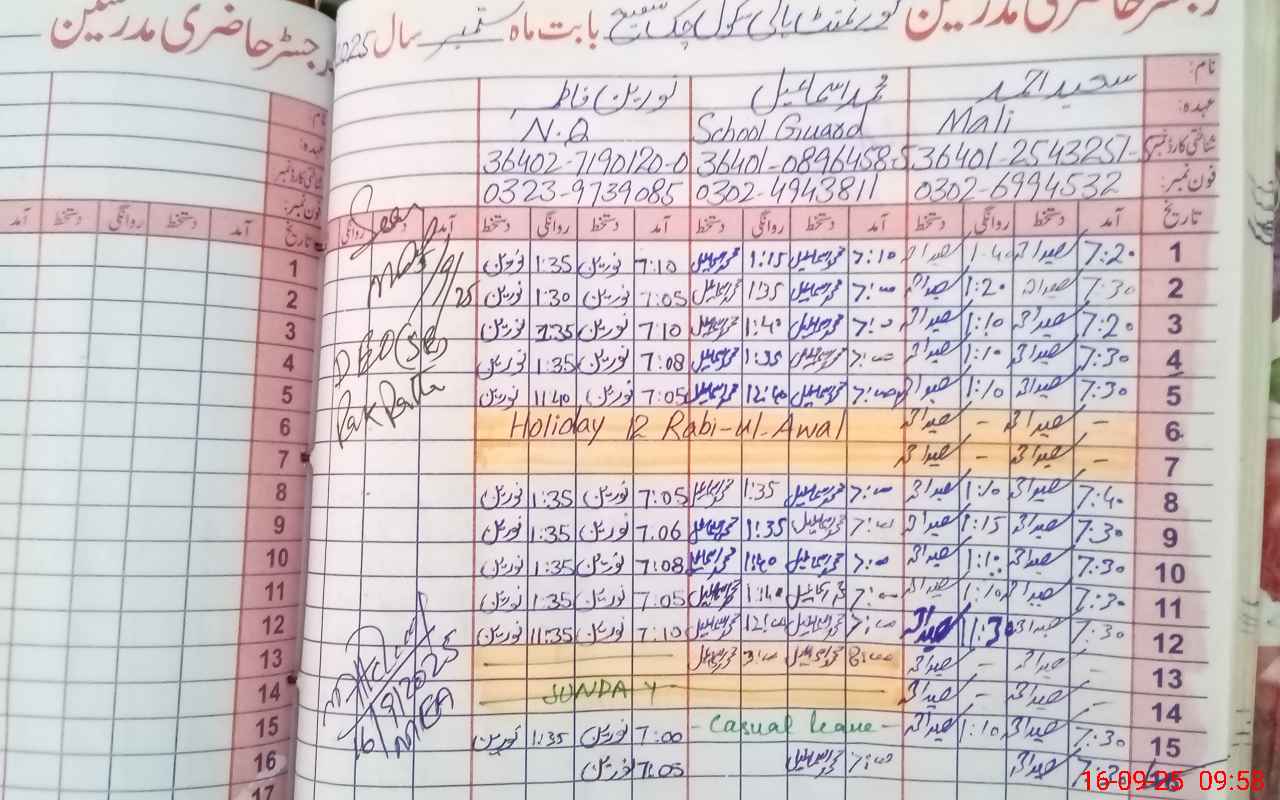 رجسٹر حاضری مدرسین گورنمنٹ ہائی سکول چک بابت ماہ ستمبر سال 2025
رجسٹر حاضری مدرسین
نام: سعید احمد محمد اسماعیل نورین فاطمہ
عہدہ: Mali School Guard N.Q
شناختی کارڈ نمبر 36401-2543257-5 36401-0896458-5 36402-7190120-0
فون نمبر: 0302-6994532 0302-4943811 0323-9739085
تاریخ آمد دستخط روانگی دستخط آمد دستخط روانگی دستخط آمد دستخط روانگی دستخط آمد دستخط روانگی
1 7:20 سعید احمد 1:40 سعید احمد 7:10 محمد اسماعیل 1:15 محمد اسماعیل 7:10 نورین 1:35 نورین 1
2 7:30 سعید احمد 1:20 سعید احمد 7:00 محمد اسماعیل 1:35 محمد اسماعیل 7:05 نورین 1:30 نورین 2
3 7:20 سعید احمد 1:10 سعید احمد 7:00 محمد اسماعیل 1:40 محمد اسماعیل 7:10 نورین 1:35 نورین 3
4 7:30 سعید احمد 1:10 سعید احمد 7:00 محمد اسماعیل 1:35 محمد اسماعیل 7:08 نورین 1:35 نورین 4
5 7:30 سعید احمد 1:10 سعید احمد 7:00 محمد اسماعیل 12:40 محمد اسماعیل 7:05 نورین 11:40 نورین 5
6 - سعید احمد - سعید احمد Holiday 12 Rabi-ul-Awal 6
7 - سعید احمد - سعید احمد 7
8 7:40 سعید احمد 1:10 سعید احمد 7:00 محمد اسماعیل 1:35 محمد اسماعیل 7:05 نورین 1:35 نورین 8
9 7:30 سعید احمد 1:15 سعید احمد 7:00 محمد اسماعیل 1:35 محمد اسماعیل 7.06 نورین 1:35 نورین 9
10 7:30 سعید احمد 1:10 سعید احمد 7:00 محمد اسماعیل 1:40 محمد اسماعیل 7:08 نورین 1:35 نورین 10
11 7:30 سعید احمد 1:10 سعید احمد 7:00 محمد اسماعیل 1:40 محمد اسماعیل 7:05 نورین 1:35 نورین 11
12 7:30 سعید احمد 11:30 سعید احمد 7:00 محمد اسماعیل 12:00 محمد اسماعیل 7:10 نورین 11:35 نورین 12
13 - سعید احمد - سعید احمد 8:00 محمد اسماعیل 3:00 محمد اسماعیل 13
14 - سعید احمد - سعید احمد SUNDAY 14
15 7:30 سعید احمد 1:10 سعید احمد - Casual leave - 7:00 نورین 1:35 نورین 15
16 7:20 سعید احمد 7:00 محمد اسماعیل 7:05 نورین 16
17
Seen
/9/25
DEO (SE)
Pak Pattan
16/9/2025
MEA
آمد دستخط روانگی دستخط آمد
16-09-25 09:58